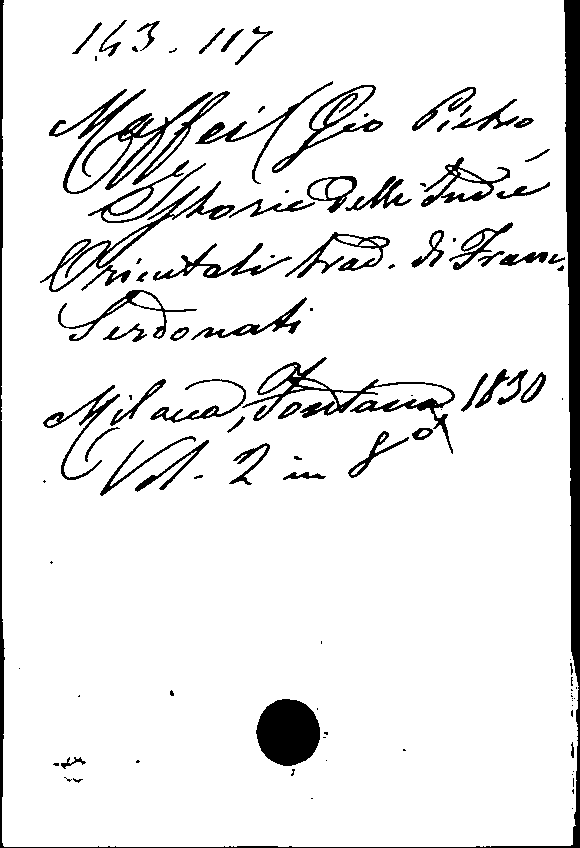 143. 117
Maffei (Gio Pietro
Istorie delle Indie
Orientali trad. di Franc.
Serdonati
Milano, Fontana, 1830
Vol. 2 in 8°